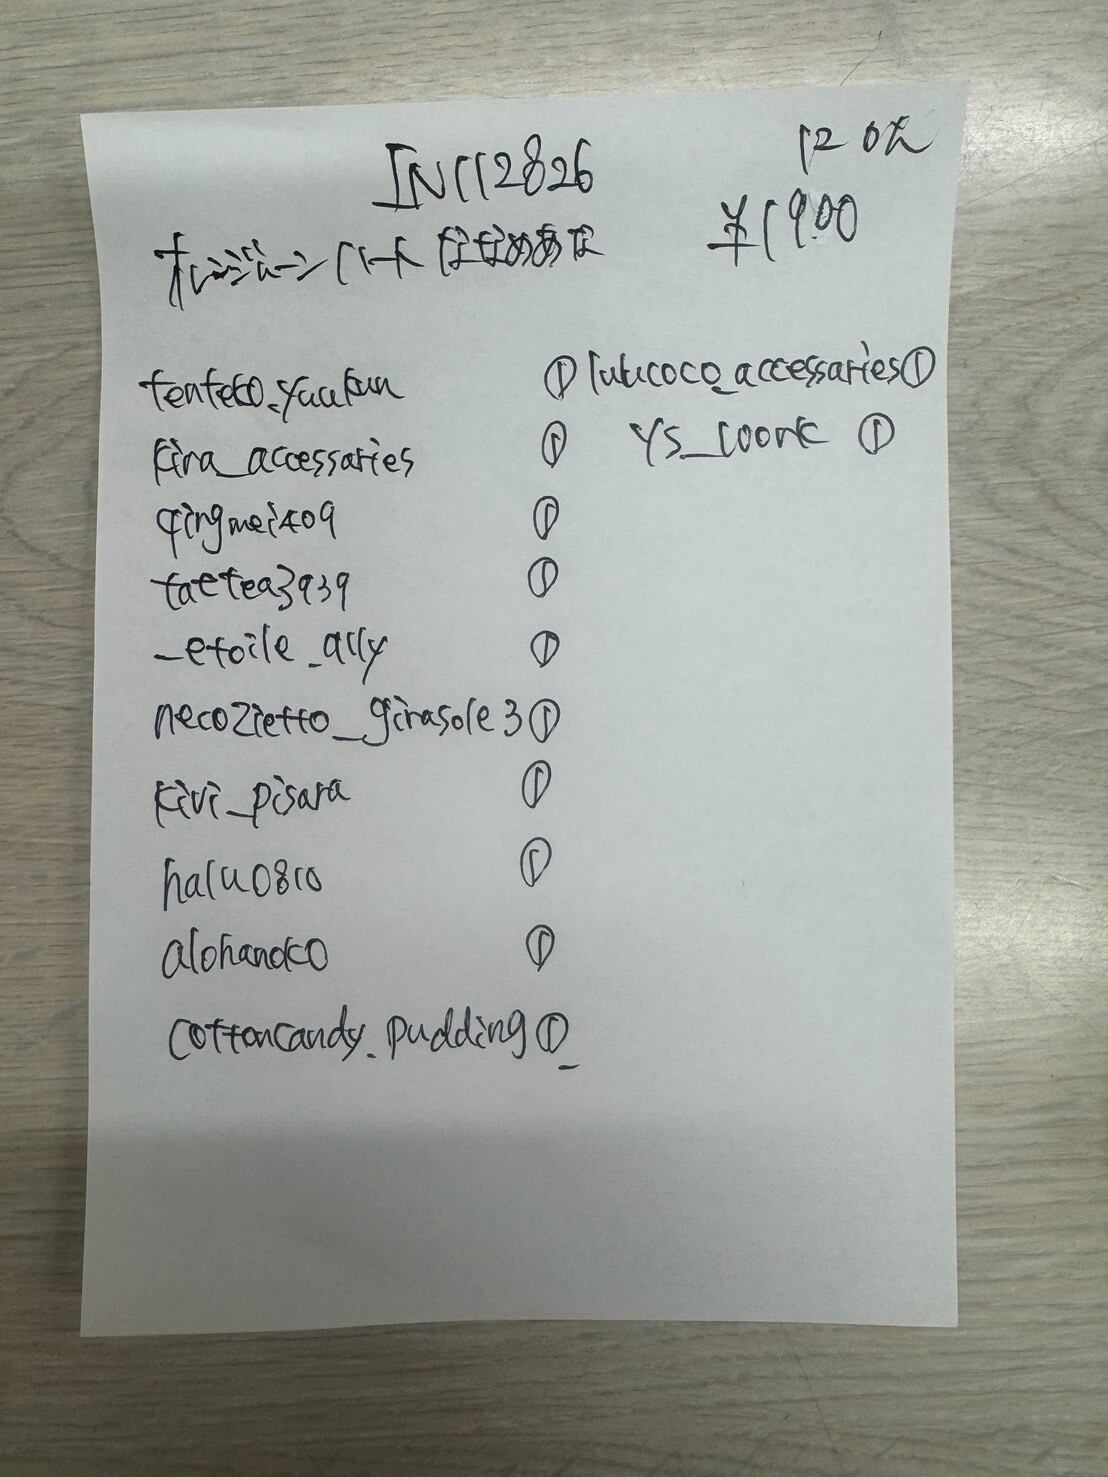 IN112826
120点
¥1900
オレンジゾーン ハート ななめあな
tenteko_yuukun ①
kira_accessaries ①
qingmei409 ①
taetea3939 ①
_etoile_ally ①
necozietto_girasole3 ①
kivi_pisara ①
halu0810 ①
alohandko ①
cottoncandy.pudding ①
lulucoco_accessaries ①
ys_coonk ①